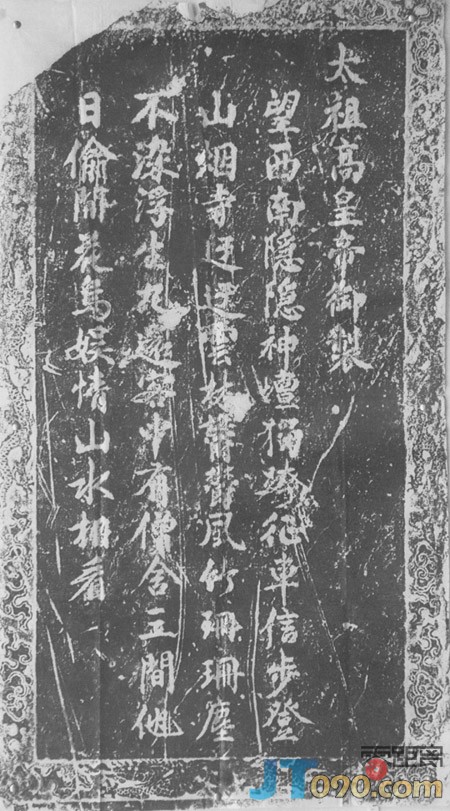 太祖高皇帝御製
望西南隱隱神壇獨跨征車信步登
山烟寺迂迂雲林鬱鬱風竹珊珊塵
不浸浮生九還客中有僧舍三間他
日偷閒花鳥娛情山水相看
JT090.com